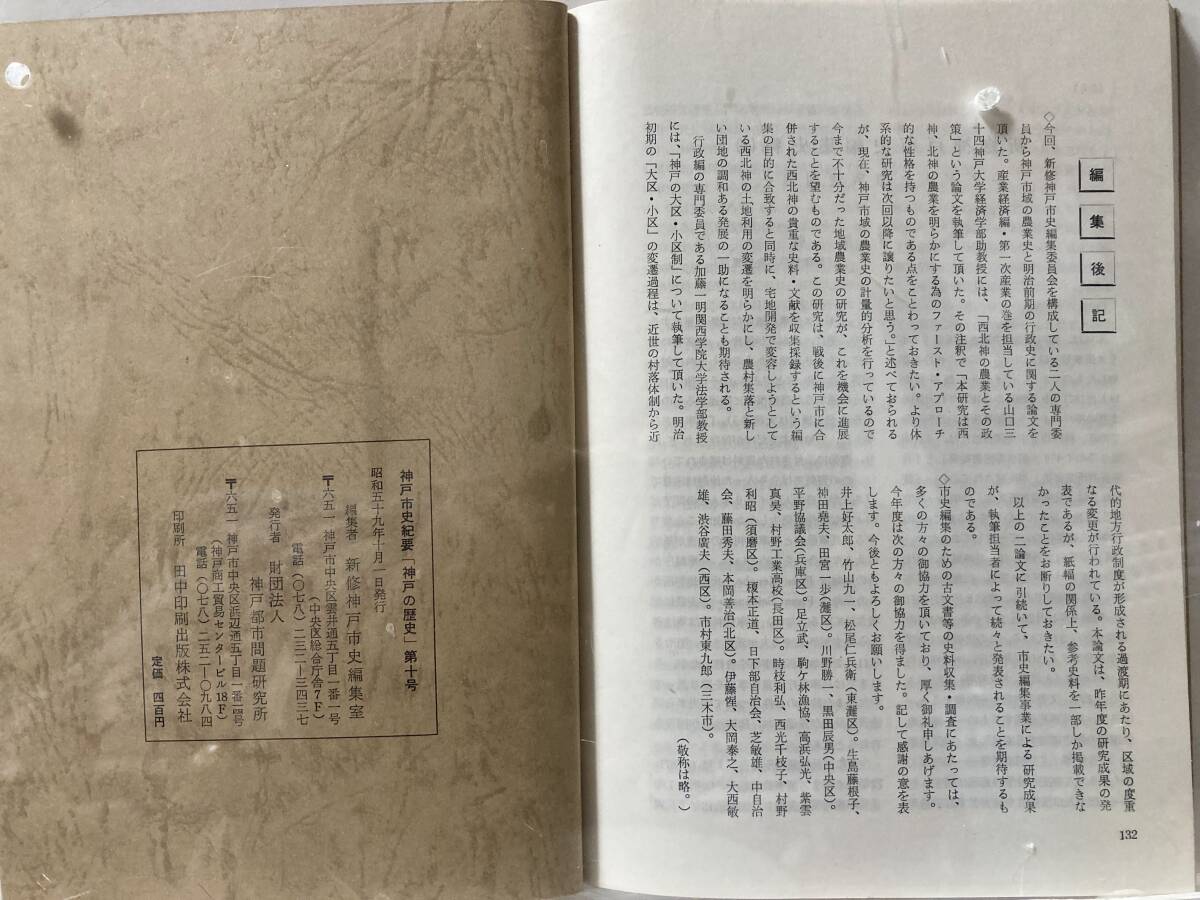 編集後記
◇今回、新修神戸市史編集委員会を構成している二人の専門委
員から神戸市域の農業史と明治前期の行政史に関する論文を
頂いた。産業経済編・第一次産業の巻を担当している山口三
十四神戸大学経済学部助教授には、「西北神の農業とその政
策」という論文を執筆して頂いた。その注釈で「本研究は西
神、北神の農業を明らかにする為のファースト・アプローチ
的な性格を持つものである点をことわっておきたい。より体
系的な研究は次回以降に譲りたいと思う。」と述べておられる
が、現在、神戸市域の農業史の計量的分析を行っているので
今まで不十分だった地域農業史の研究が、これを機会に進展
することを望むものである。この研究は、戦後に神戸市に合
併された西北神の貴重な史料・文献を収集採録するという編
集の目的に合致すると同時に、宅地開発で変容しようとして
いる西北神の土地利用の変遷を明らかにし、農村集落と新し
い団地の調和ある発展の一助になることも期待される。
行政編の専門委員である加藤一明関西学院大学法学部教授
には、「神戸の大区・小区制」について執筆して頂いた。明治
初期の「大区・小区」の変遷過程は、近世の村落体制から近
代的地方行政制度が形成される過渡期にあたり、区域の度重
なる変更が行われている。本論文は、昨年度の研究成果の発
表であるが、紙幅の関係上、参考史料を一部しか掲載できな
かったことをお断りしておきたい。
以上の二論文に引続いて、市史編集事業による研究成果
が、執筆担当者によって続々と発表されることを期待するも
のである。
◇市史編集のための古文書等の史料収集・調査にあたっては、
多くの方々の御協力を頂いており、厚く御礼申しあげます。
今年度は次の方々の御協力を得ました。記して感謝の意を表
します。今後ともよろしくお願いします。
井上好太郎、竹山九一、松尾仁兵衛（東灘区）。生島藤根子、
神田堯夫、田宮一歩（灘区）。川野勝一、黒田辰男（中央区）。
平野協議会（兵庫区）。足立武、駒ケ林漁協、高浜弘光、紫雲
真昊、村野工業高校（長田区）。時枝利弘、西光千枝子、村野
利昭（須磨区）。榎本正道、日下部自治会、芝敏雄、中自治
会、藤田秀夫、本岡善治（北区）。伊藤惺、大岡泰之、大西敏
雄、渋谷廣夫（西区）。市村東九郎（三木市）。
（敬称は略。）
132
神戸市史紀要「神戸の歴史」第十号
昭和五十九年十月一日発行
編集者 新修神戸市史編集室
〒六五一 神戸市中央区雲井通五丁目一番一号
（中央区総合庁舎7F）
電話（〇七八）二三二-三四三七
発行者 財団法人 神戸都市問題研究所
〒六五一 神戸市中央区浜辺通五丁目一番 号
（神戸商工貿易センタービル18F）
電話（〇七八）二五二-〇九八四
印刷所 田中印刷出版株式会社
定価 四百円